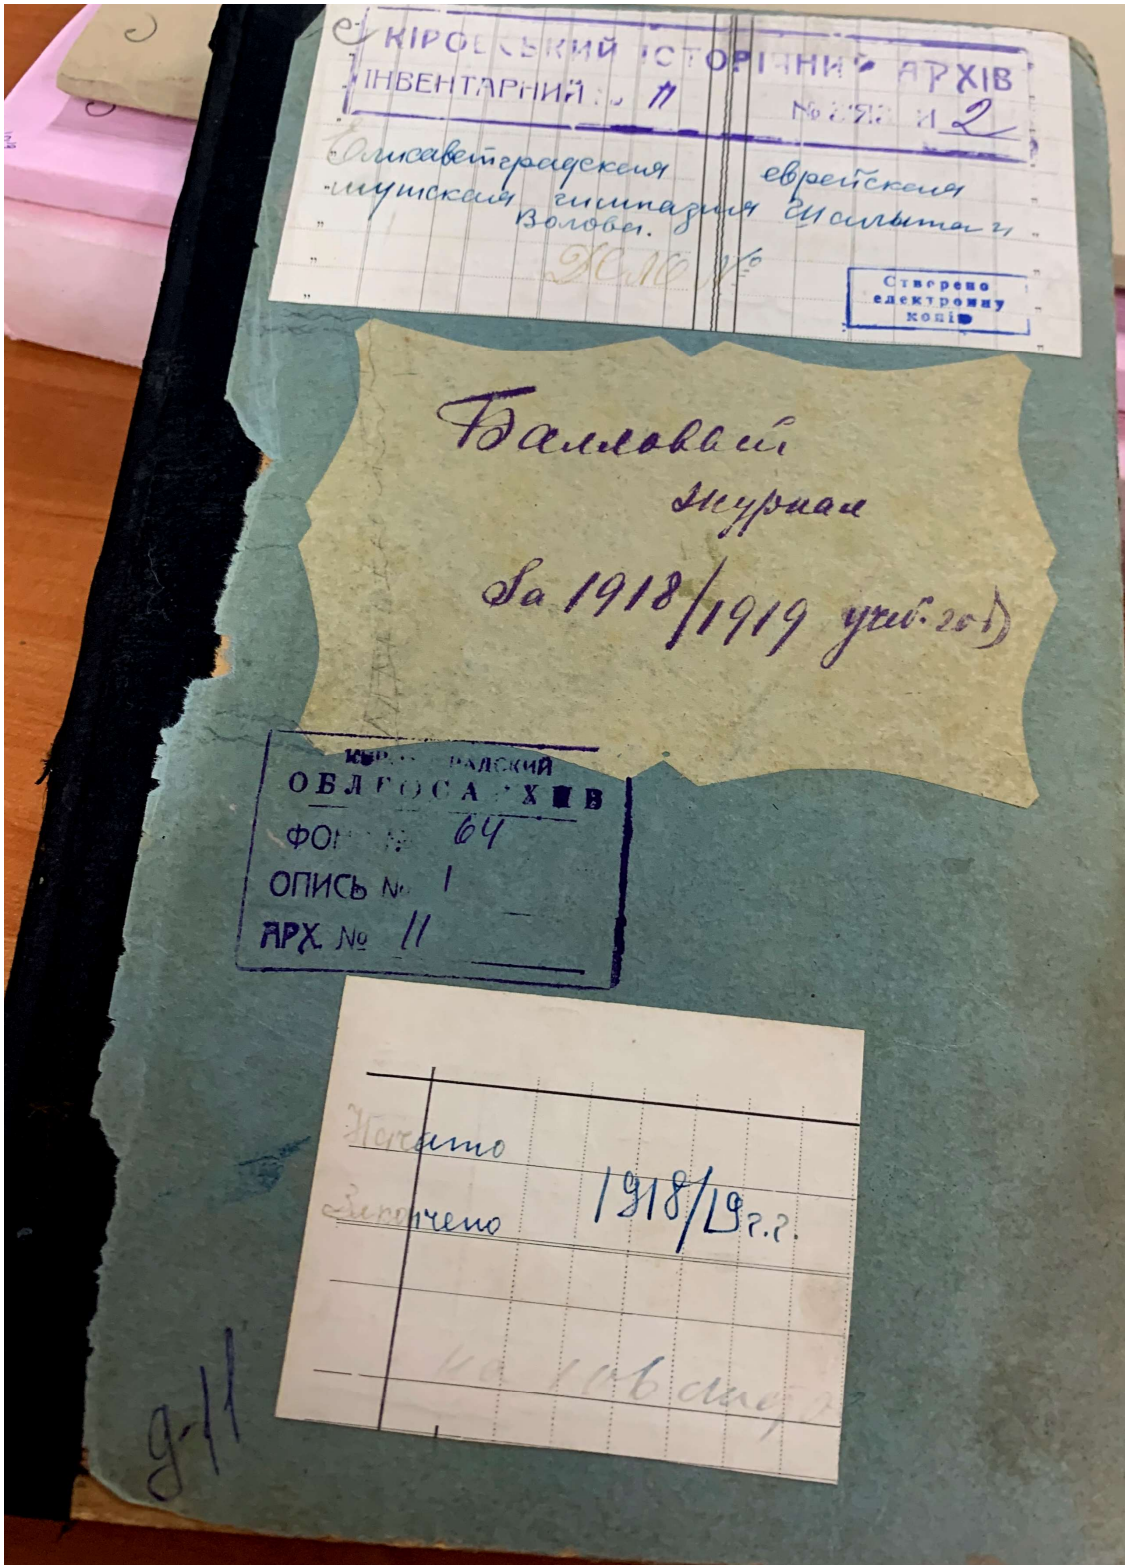 КІРОВСЬКИЙ ІСТОРІЧНИЙ АРХІВ
ІНВЕНТАРНИЙ № 11 2
Елисаветградская еврейская
мужская гимназия Шалыта и
Волова.
Дело №
Створено
електронну
копію
Балловый
журнал
за 1918/1919 учеб. год
КИРОВОГРАДСКИЙ
ОБЛГОСАРХИВ
ФОНД № 64
ОПИСЬ № 1
АРХ. № 11
Начато
1918/19 г.г.
Закончено
на 106 листах
д-11